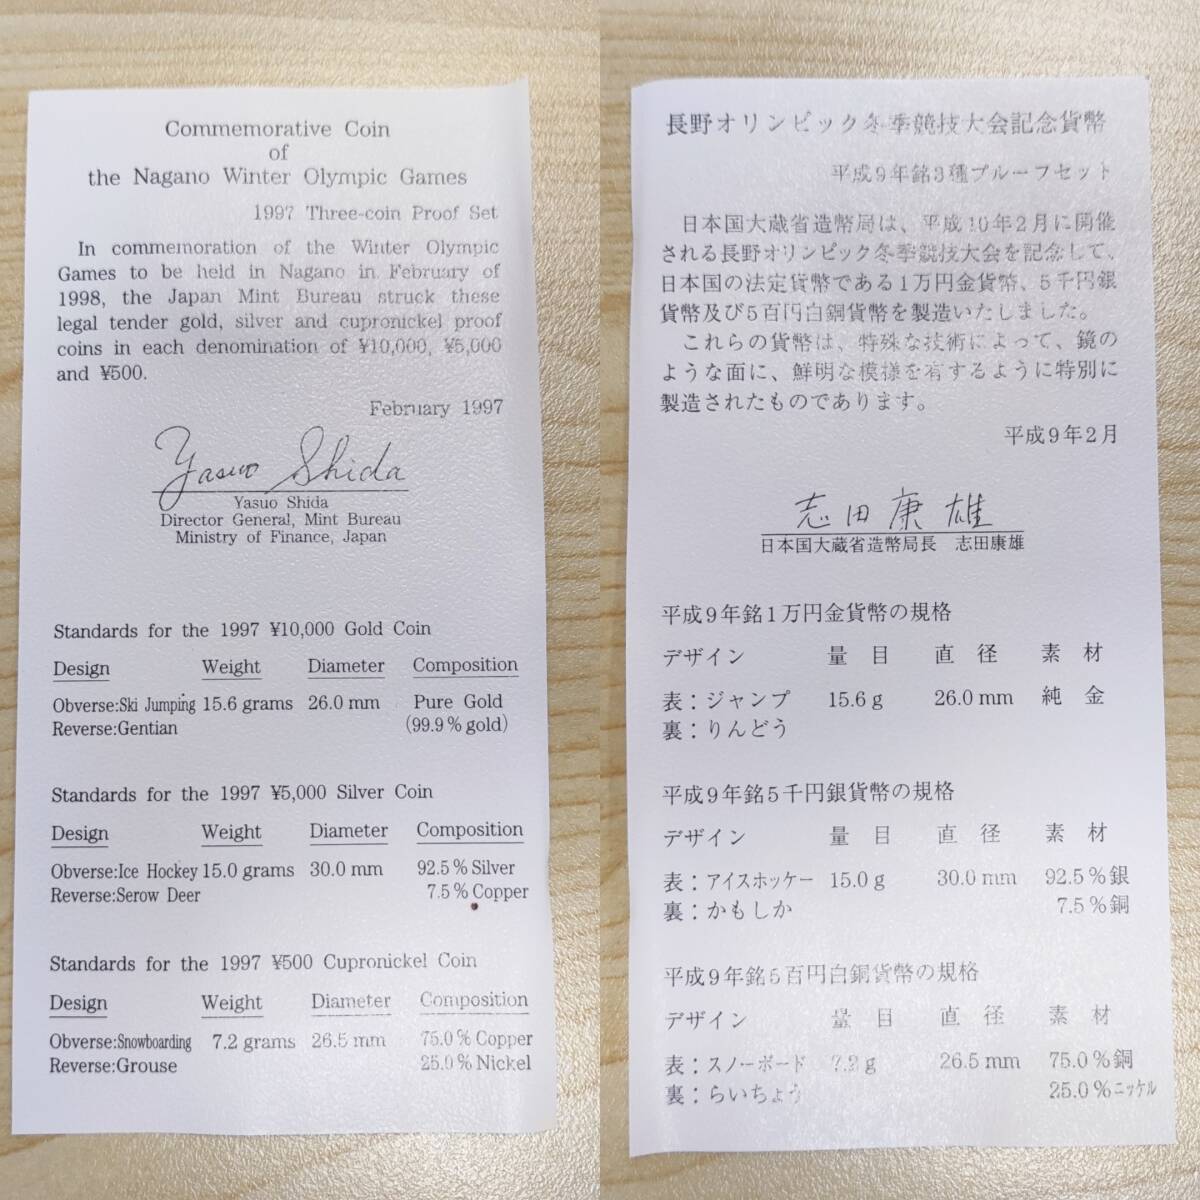 Commemorative Coin
of
the Nagano Winter Olympic Games
1997 Three-coin Proof Set
In commemoration of the Winter Olympic
Games to be held in Nagano in February of
1998, the Japan Mint Bureau struck these
legal tender gold, silver and cupronickel proof
coins in each denomination of ¥10,000, ¥5,000
and ¥500.
February 1997
Yasuo Shida
Yasuo Shida
Director General, Mint Bureau
Ministry of Finance, Japan
Standards for the 1997 ¥10,000 Gold Coin
Design Weight Diameter Composition
Obverse:Ski Jumping 15.6 grams 26.0 mm Pure Gold
Reverse:Gentian (99.9% gold)
Standards for the 1997 ¥5,000 Silver Coin
Design Weight Diameter Composition
Obverse:Ice Hockey 15.0 grams 30.0 mm 92.5% Silver
Reverse:Serow Deer 7.5% Copper
Standards for the 1997 ¥500 Cupronickel Coin
Design Weight Diameter Composition
Obverse:Snowboarding 7.2 grams 26.5 mm 75.0% Copper
Reverse:Grouse 25.0% Nickel
長野オリンピック冬季競技大会記念貨幣
平成9年銘3種プルーフセット
日本国大蔵省造幣局は、平成10年2月に開催
される長野オリンピック冬季競技大会を記念して、
日本国の法定貨幣である1万円金貨幣、5千円銀
貨幣及び5百円白銅貨幣を製造いたしました。
これらの貨幣は、特殊な技術によって、鏡の
ような面に、鮮明な模様を有するように特別に
製造されたものであります。
平成9年2月
志田康雄
日本国大蔵省造幣局長 志田康雄
平成9年銘1万円金貨幣の規格
デザイン 量目 直径 素材
表：ジャンプ 15.6g 26.0mm 純金
裏：りんどう
平成9年銘5千円銀貨幣の規格
デザイン 量目 直径 素材
表：アイスホッケー 15.0g 30.0mm 92.5%銀
裏：かもしか 7.5%銅
平成9年銘5百円白銅貨幣の規格
デザイン 量目 直径 素材
表：スノーボード 7.2g 26.5mm 75.0%銅
裏：らいちょう 25.0%ニッケル